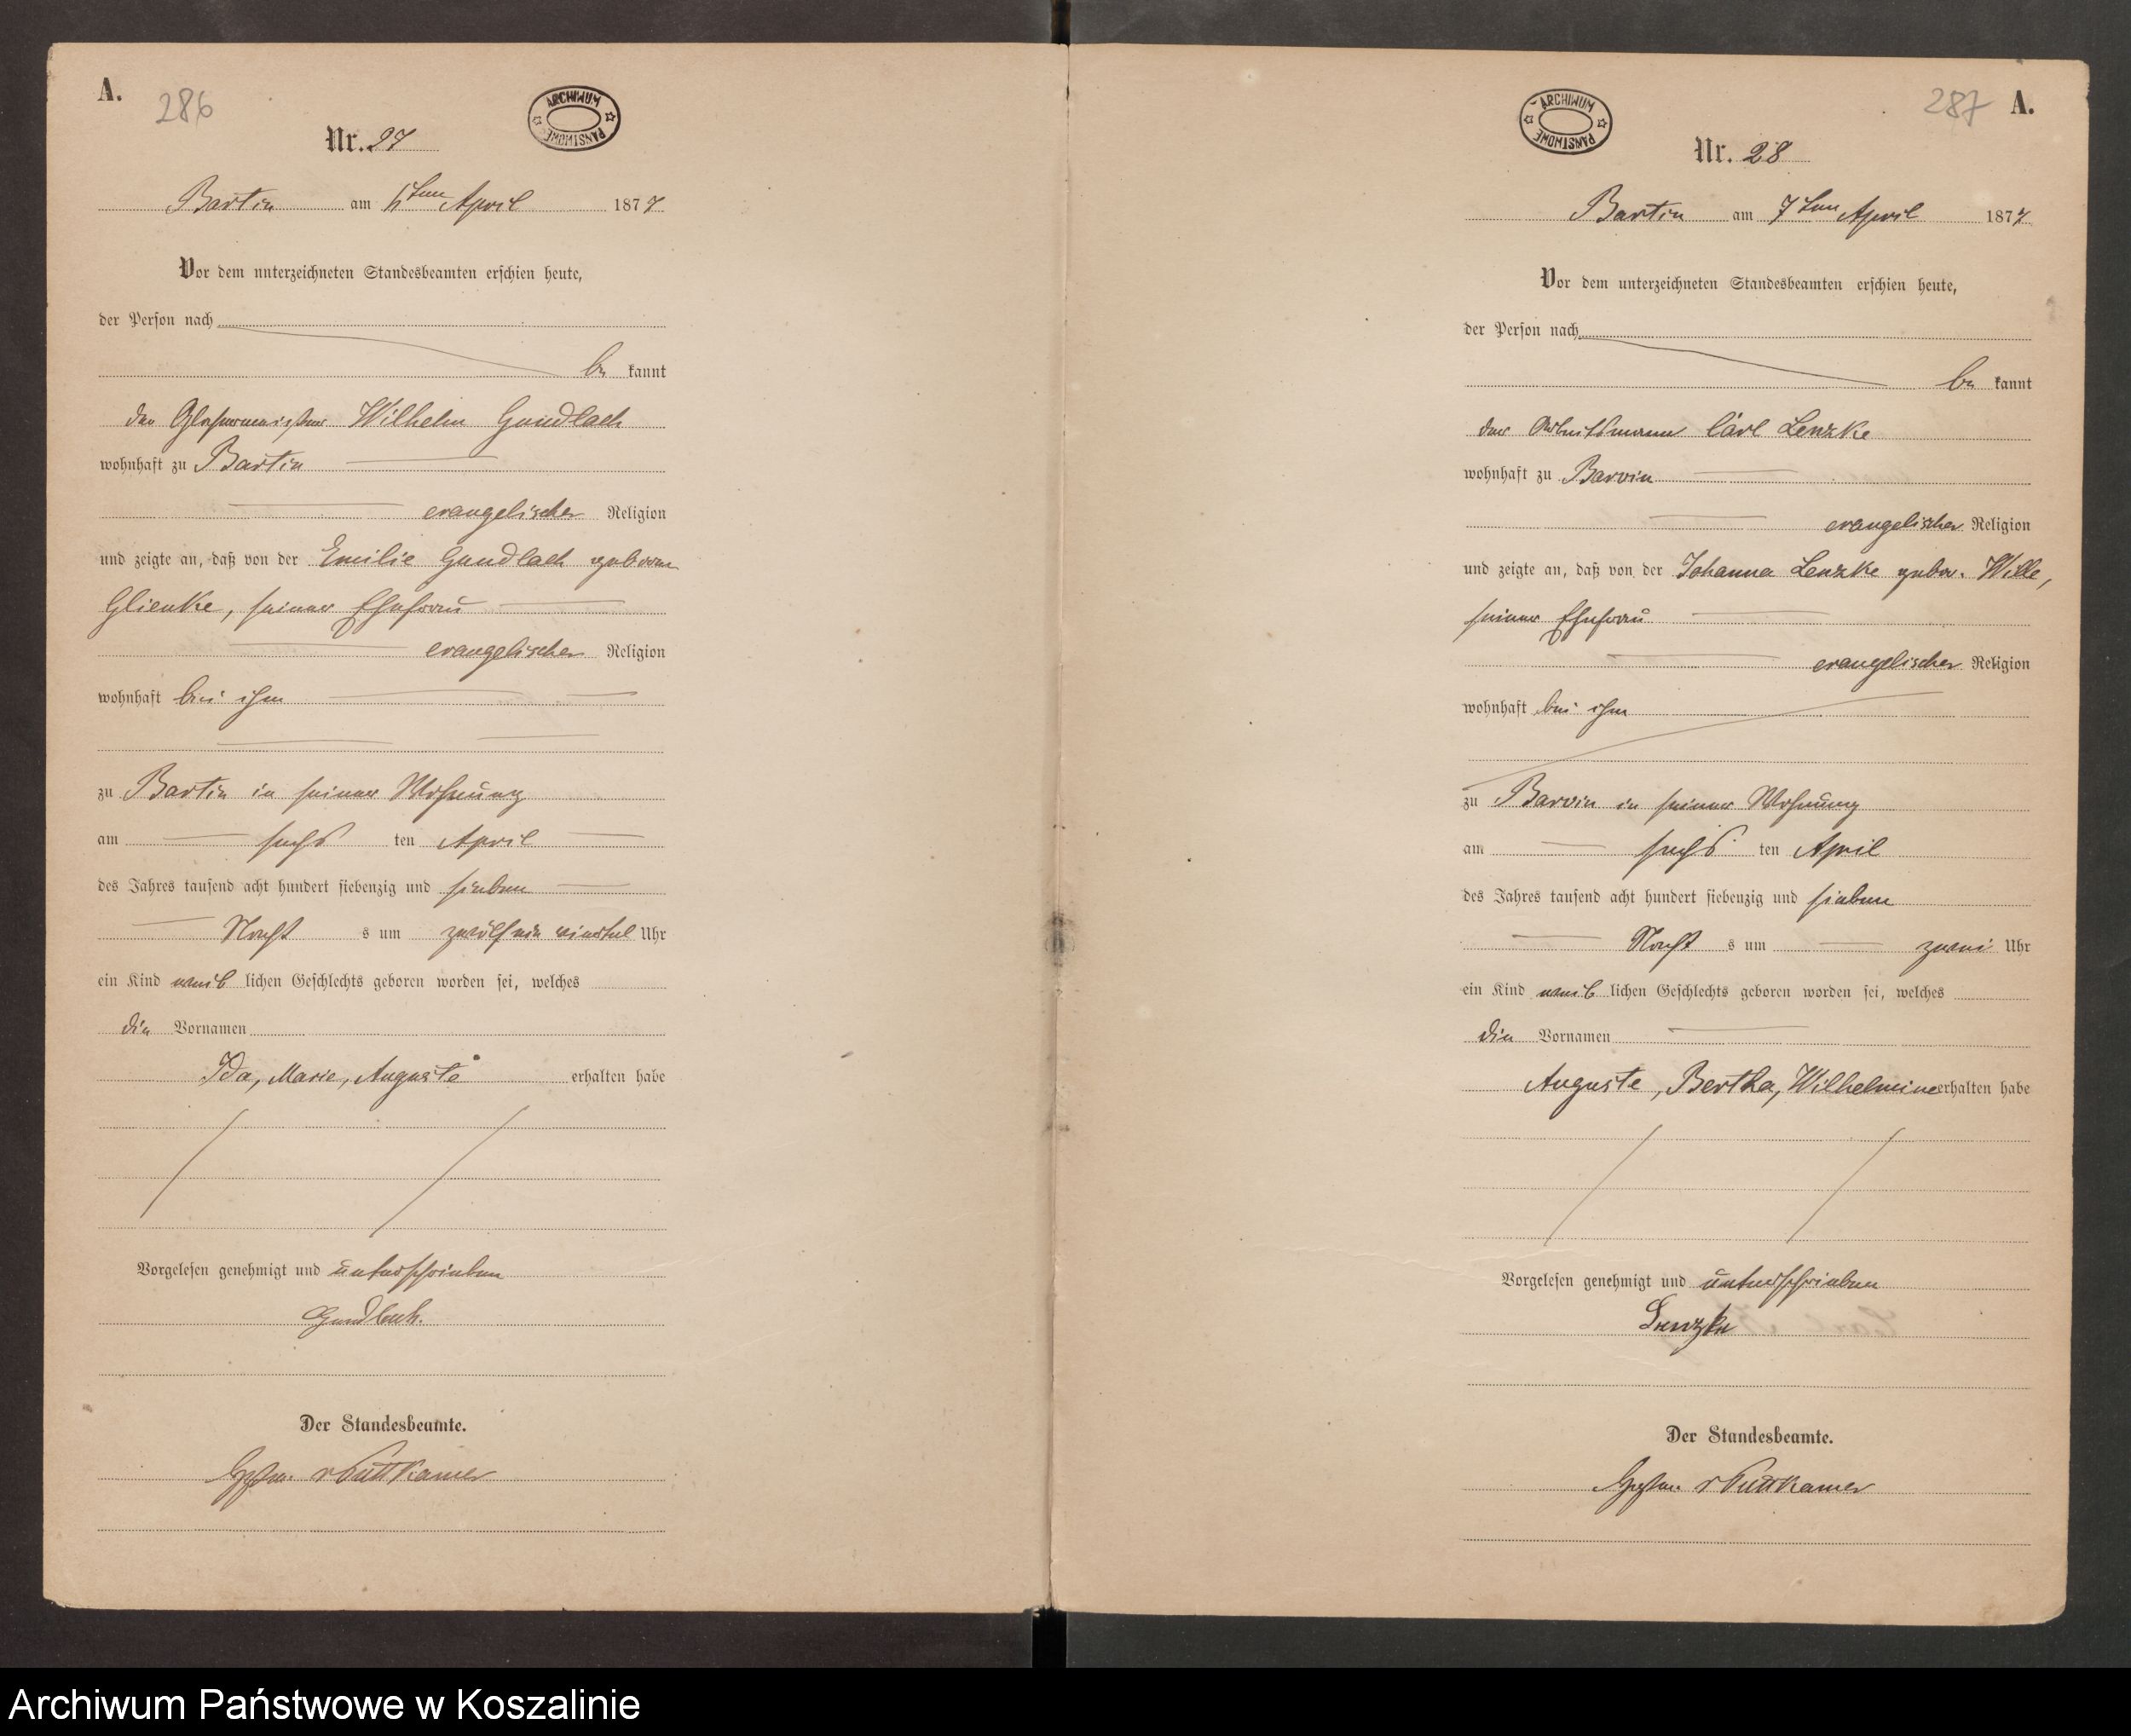 A.
286
ARCHIWUM PAŃSTWOWE
Nr. 27
Bartin am 6ten April 1877
Vor dem unterzeichneten Standesbeamten erschien heute,
der Person nach
be kannt
der Glasermeister Wilhelm Gundlach
wohnhaft zu Bartin
evangelischer Religion
und zeigte an, daß von der Emilie Gundlach geborne
Glienke, seiner Ehefrau
evangelischer Religion
wohnhaft bei ihm
zu Bartin in seiner Wohnung
am sechs ten April
des Jahres tausend acht hundert siebenzig und sieben
Nacht s um zwölf ein viertel Uhr
ein Kind weib lichen Geschlechts geboren worden sei, welches
die Vornamen
Ida, Marie, Auguste erhalten habe
Vorgelesen genehmigt und unterschrieben
Gundlach.
Der Standesbeamte.
v Puttkamer
287 A.
ARCHIWUM PAŃSTWOWE
Nr. 28
Bartin am 7ten April 1877
Vor dem unterzeichneten Standesbeamten erschien heute,
der Person nach
be kannt
der Arbeitsmann Carl Lenzke
wohnhaft zu Barvin
evangelischer Religion
und zeigte an, daß von der Johanna Lenzke gebor. Wille,
seiner Ehefrau
evangelischer Religion
wohnhaft bei ihm
zu Barvin in seiner Wohnung
am sechs ten April
des Jahres tausend acht hundert siebenzig und sieben
Nacht s um zwei Uhr
ein Kind weib lichen Geschlechts geboren worden sei, welches
die Vornamen
Auguste, Bertha, Wilhelmine erhalten habe
Vorgelesen genehmigt und unterschrieben
Lenzke
Der Standesbeamte.
v Puttkamer
Archiwum Państwowe w Koszalinie